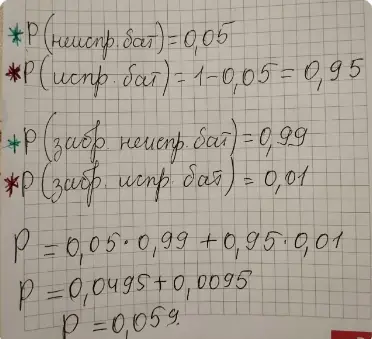 *P(неиспр. бат)=0,05
*P(испр. бат)=1-0,05=0,95
*P(забр. неиспр. бат)=0,99
*P(забр. испр. бат)=0,01
P=0,05·0,99+0,95·0,01
P=0,0495+0,0095
P=0,059.